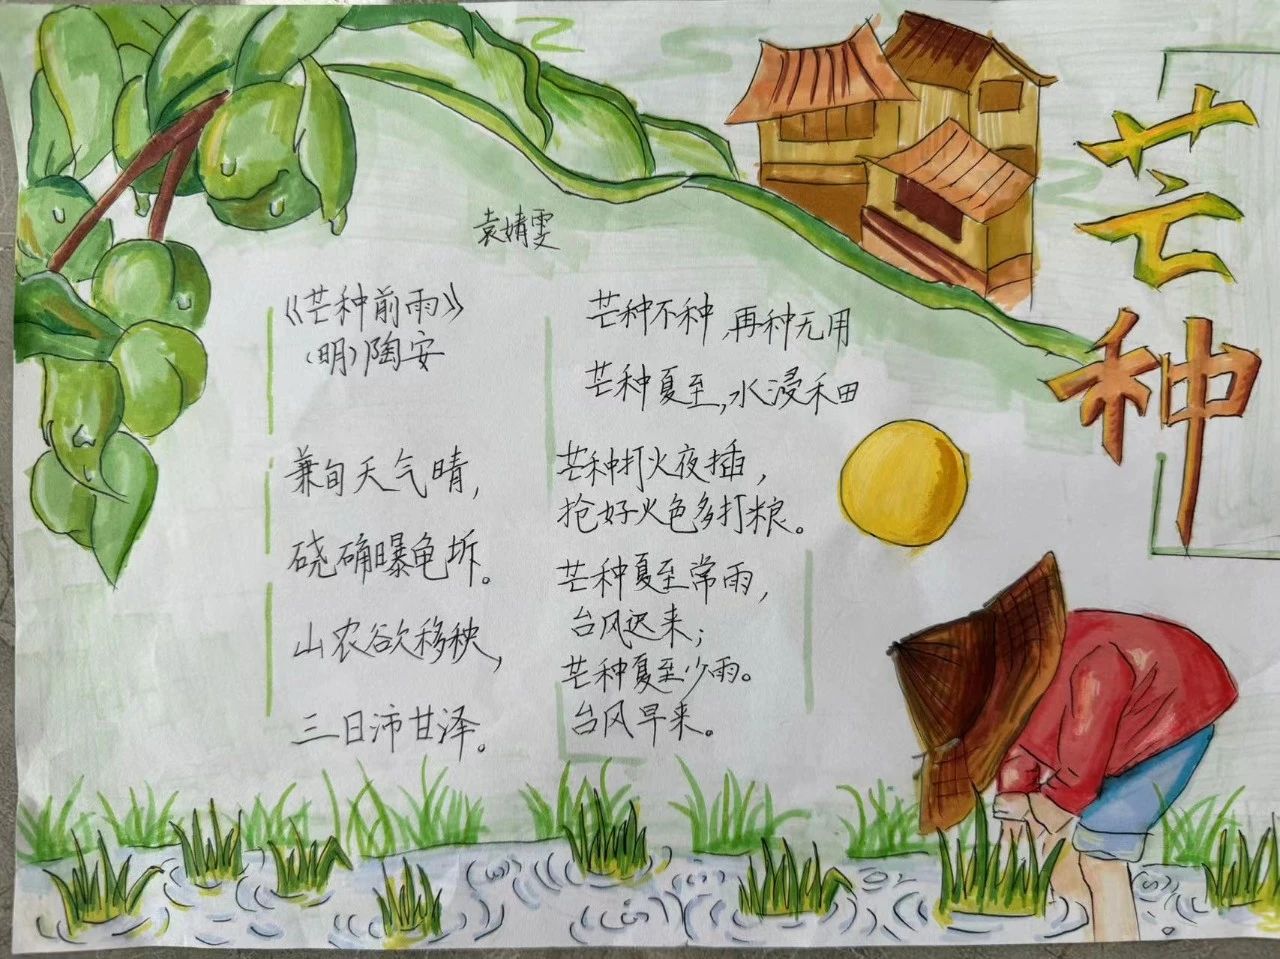 芒种
袁婧雯
《芒种前雨》
（明）陶安
兼旬天气晴，
硗确曝龟坼。
山农欲移秧，
三日沛甘泽。
芒种不种，再种无用
芒种夏至，水浸禾田
芒种打火夜插，
抢好火色多打粮。
芒种夏至常雨，
台风迟来；
芒种夏至少雨。
台风早来。